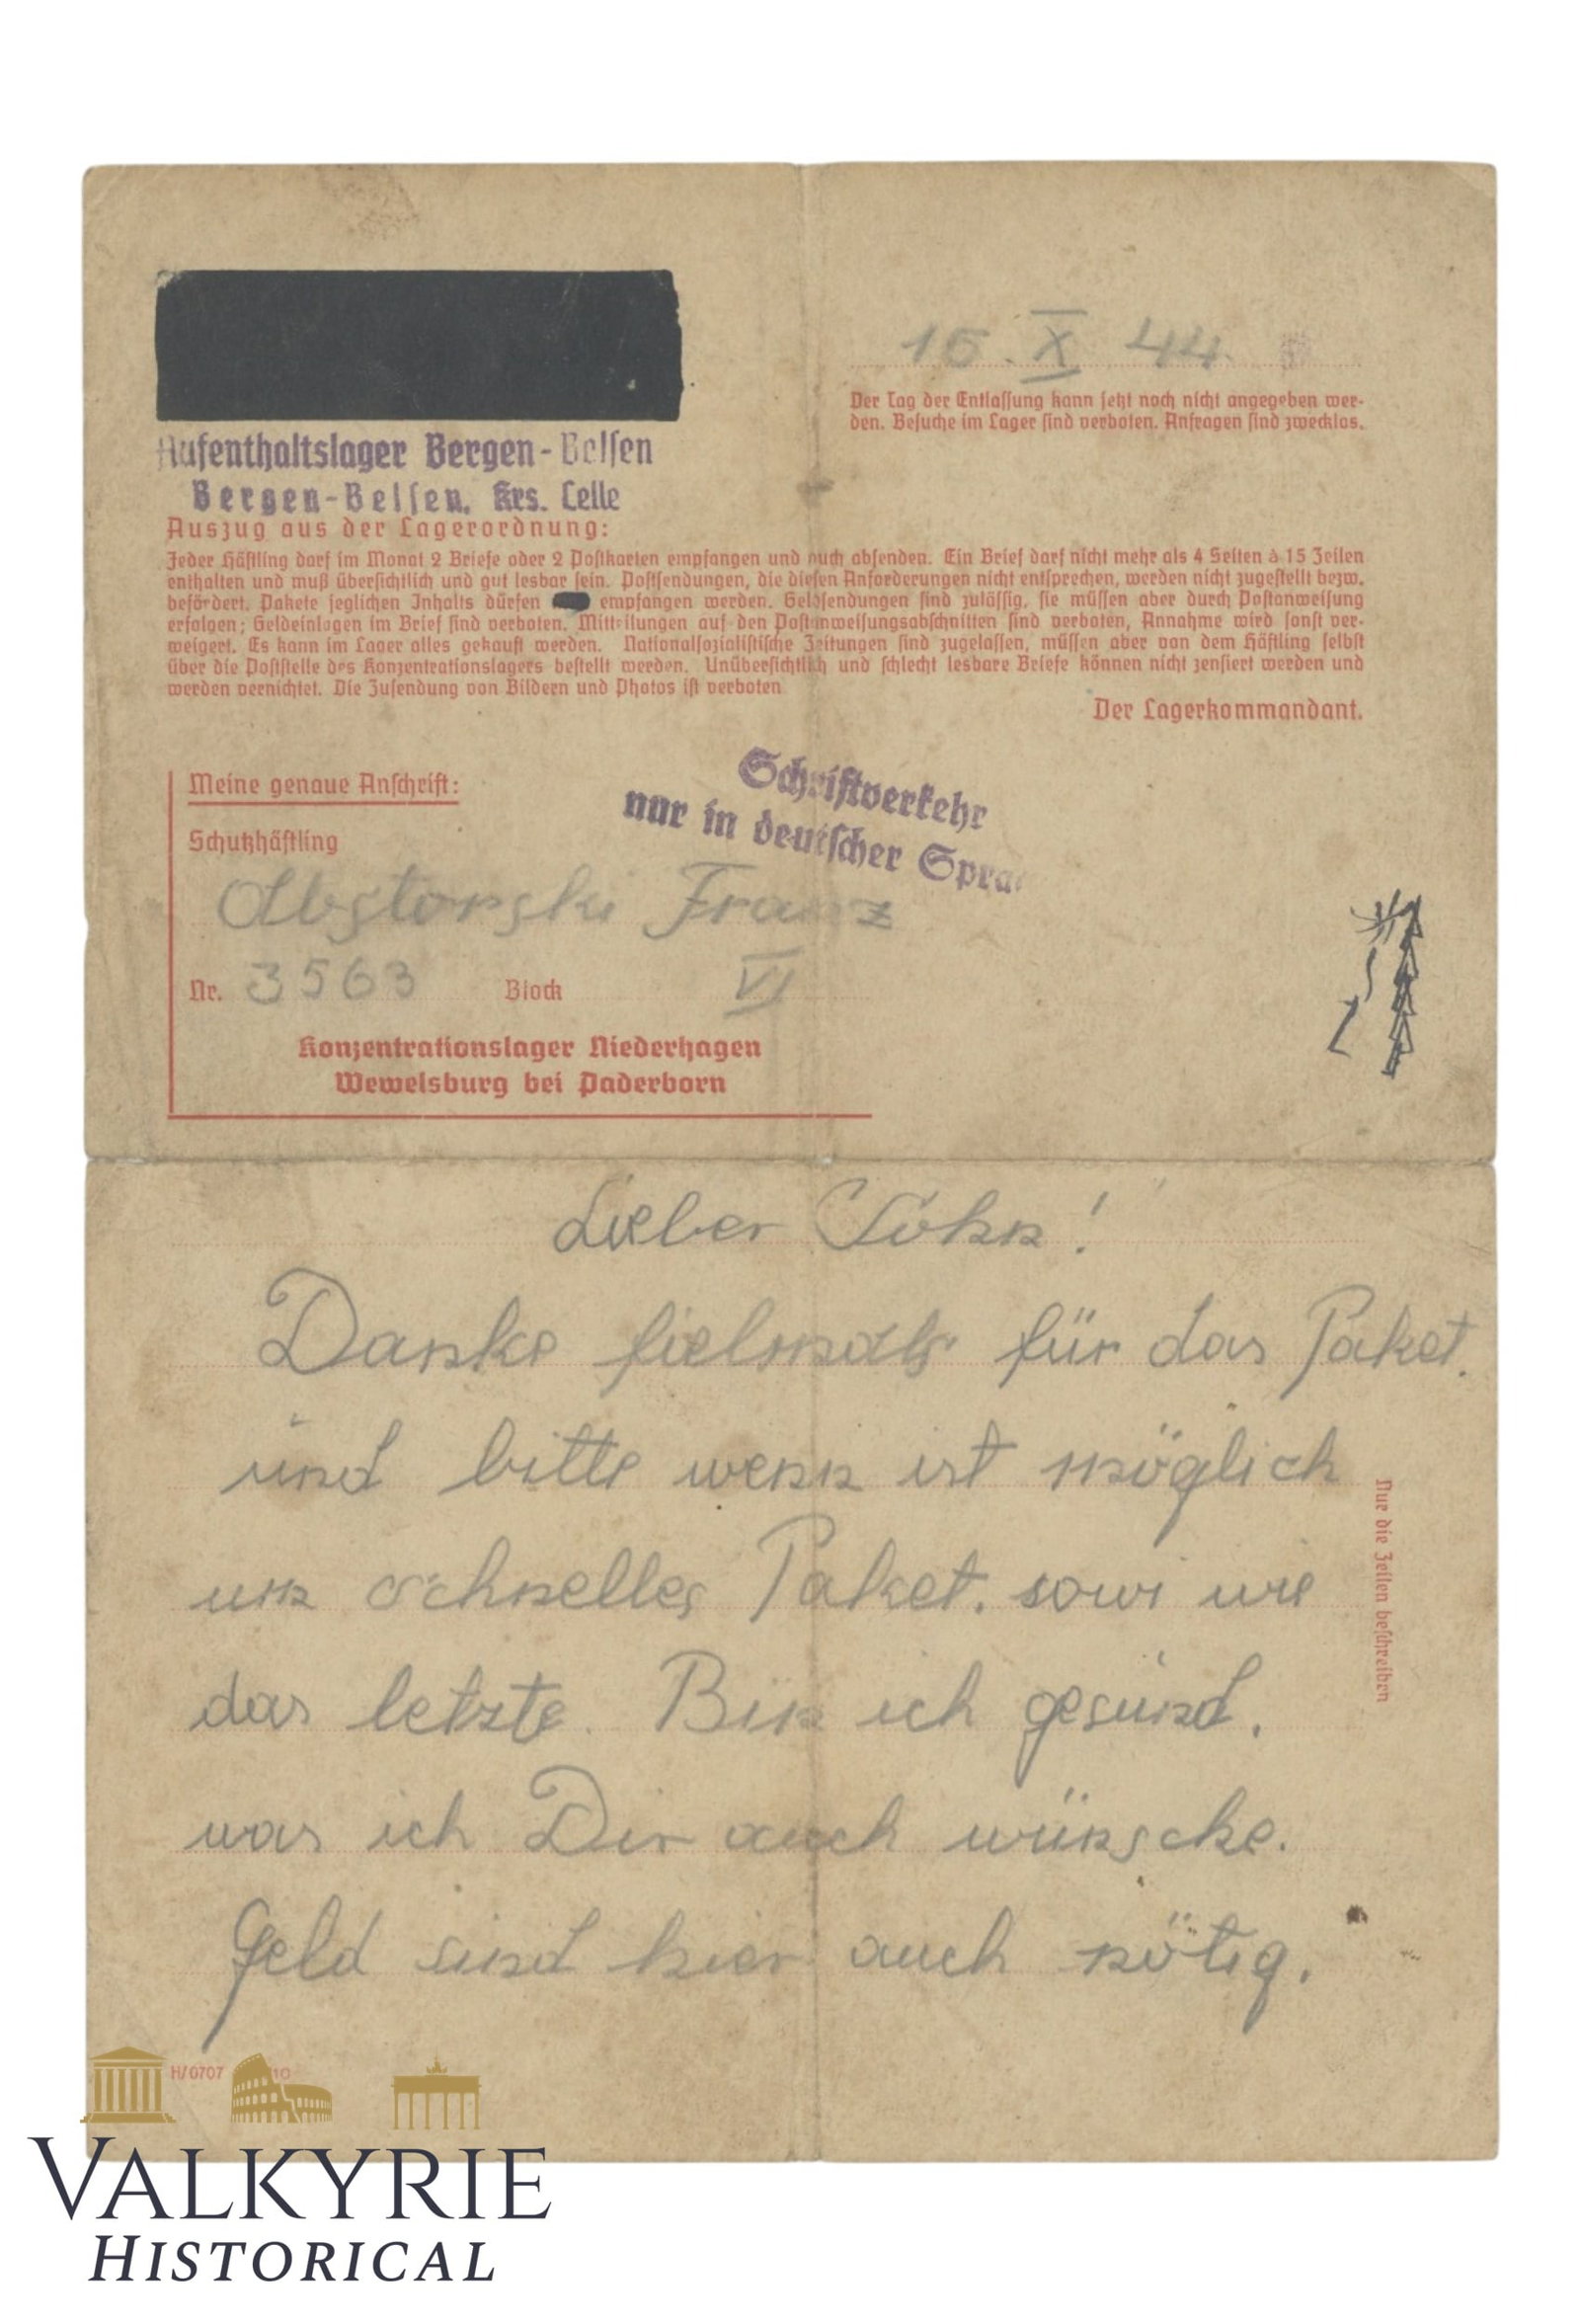 15. X 44.
Der Tag der Entlassung kann jetzt noch nicht angegeben wer-
den. Besuche im Lager sind verboten. Anfragen sind zwecklos.
Aufenthaltslager Bergen-Belsen
Bergen-Belsen, Krs. Celle
Auszug aus der Lagerordnung:
Jeder Häftling darf im Monat 2 Briefe oder 2 Postkarten empfangen und auch absenden. Ein Brief darf nicht mehr als 4 Seiten à 15 Zeilen
enthalten und muß übersichtlich und gut lesbar sein. Postsendungen, die diesen Anforderungen nicht entsprechen, werden nicht zugestellt bezw.
befördert. Pakete jeglichen Inhalts dürfen empfangen werden. Geldsendungen sind zulässig, sie müssen aber durch Postanweisung
erfolgen; Geldeinlagen im Brief sind verboten. Mitteilungen auf den Postanweisungsabschnitten sind verboten, Annahme wird sonst ver-
weigert. Es kann im Lager alles gekauft werden. Nationalsozialistische Zeitungen sind zugelassen, müssen aber von dem Häftling selbst
über die Poststelle des Konzentrationslagers bestellt werden. Unübersichtlich und schlecht lesbare Briefe können nicht zensiert werden und
werden vernichtet. Die Zusendung von Bildern und Photos ist verboten
Der Lagerkommandant.
Meine genaue Anschrift:
Schriftverkehr
nur in deutscher Sprac
Schutzhäftling
Franz
Nr. 3563 Block VI
Konzentrationslager Niederhagen
Wewelsburg bei Paderborn
Lieber Sohn!
Danke fielmals für das Paket.
und bitte wenn ist möglich
un schnelles Paket. sowi wie
das letzte. Bin ich gesund.
was ich Dir auch wünsche.
Geld sind hier auch nötig.
Nur die Zeilen beschreiben
H/0707
VALKYRIE
HISTORICAL